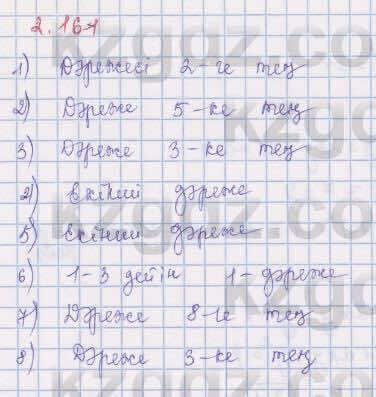 2.161
1) Дәрежесі 2-ге тең
2) Дәреже 5-ке тең
3) Дәреже 3-ке тең
4) Екінші дәреже
5) Екінші дәреже
6) 1-3 дейін 1-дәреже
7) Дәреже 8-ге тең
8) Дәреже 3-ке тең